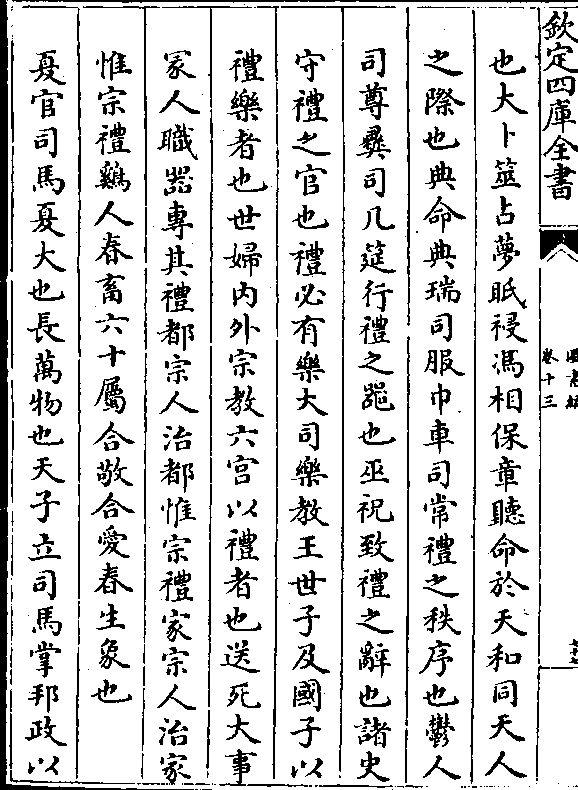 欽定四庫全書
圖書編
卷十三
也大卜筮占夢眡祲馮相保章聽命於天和同天人
之際也典命典瑞司服巾車司常禮之秩序也鬱人
司尊彞司几筵行禮之噐也巫祝致禮之辭也諸史
守禮之官也禮必有樂大司樂教王世子及國子以
禮樂者也世婦内外宗教六宫以禮者也送死大事
冢人職喪專其禮都宗人治都惟宗禮家宗人治家
惟宗禮鷄人春畜六十屬合敬合愛春生象也
夏官司馬夏大也長萬物也天子立司馬掌邦政以